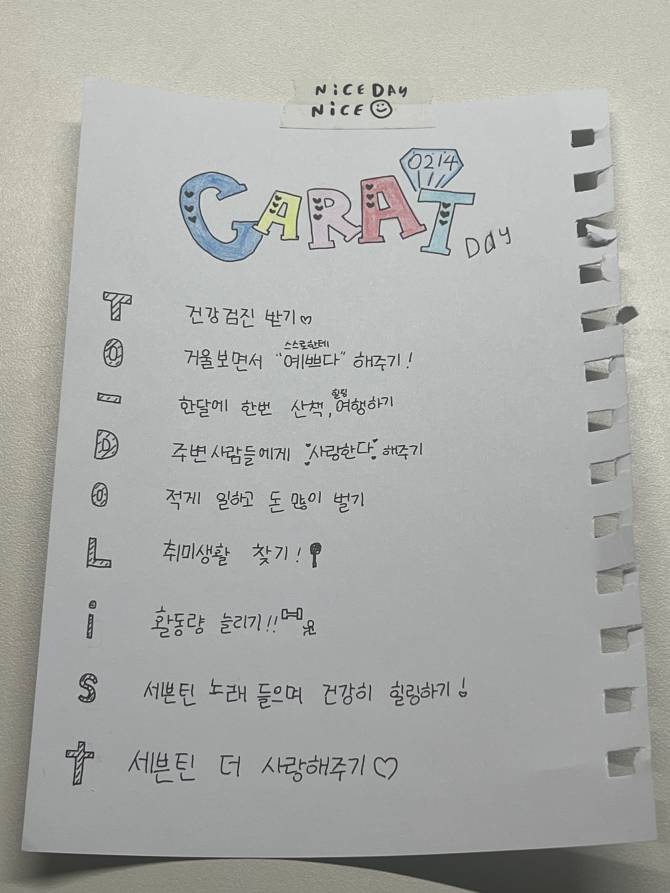 NiCE DAY
NiCE
0214
CARAT Day
T 건강검진 받기♡
O 거울보면서 "스스로한테 예쁘다" 해주기!
- 한달에 한번 산책, 힐링 여행하기
D 주변사람들에게 ♥사랑한다♥ 해주기
O 적게 일하고 돈 많이 벌기
L 취미생활 찾기!
i 활동량 늘리기!!
S 세븐틴 노래 들으며 건강히 힐링하기!
t 세븐틴 더 사랑해주기♡